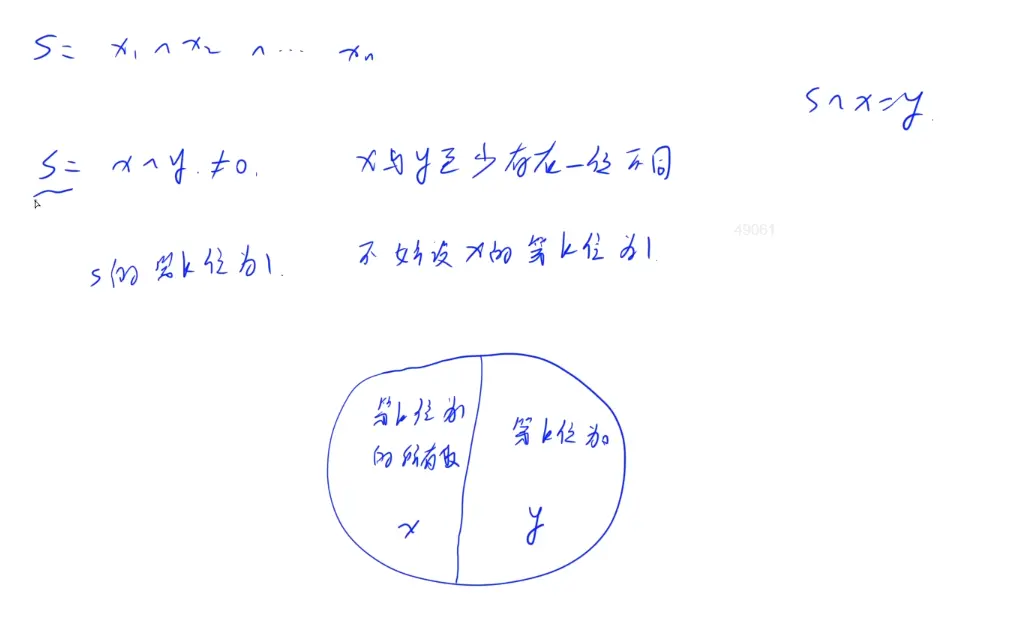 S = x₁ ^ x₂ ^ ... xₙ
S ^ x = y.
S = x ^ y ≠ 0. x与y至少存在一位不同
49061
S的第k位为1. 不妨设x的第k位为1.
第k位为1
的所有数
第k位为0
x
y